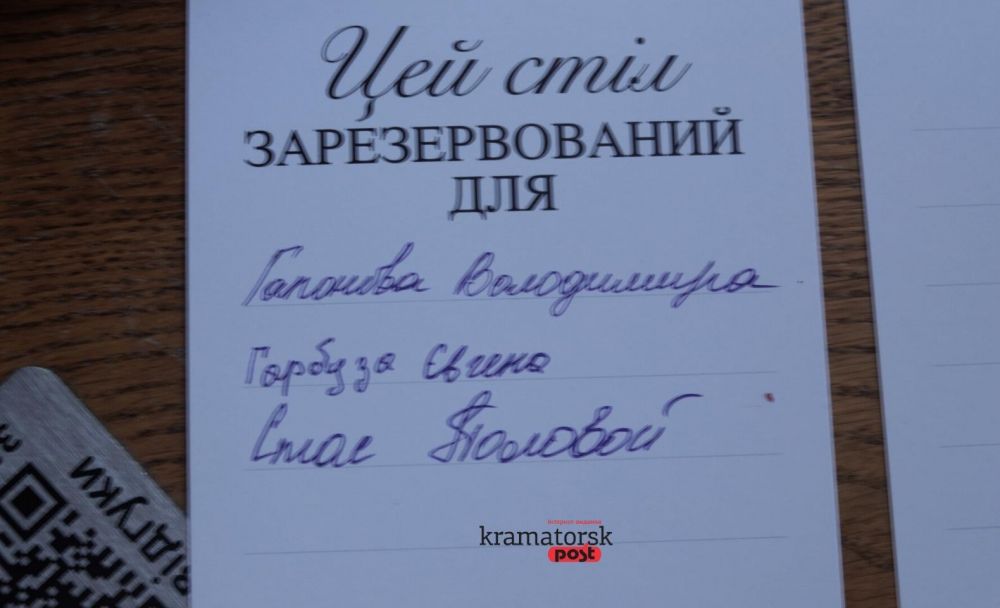 Цей стіл
ЗАРЕЗЕРВОВАНИЙ
ДЛЯ
Гапонова Володимира
Гарбуза Євгена
Стас Половой
інтернет-видання
kramatorsk
post
ВІДГУКИ